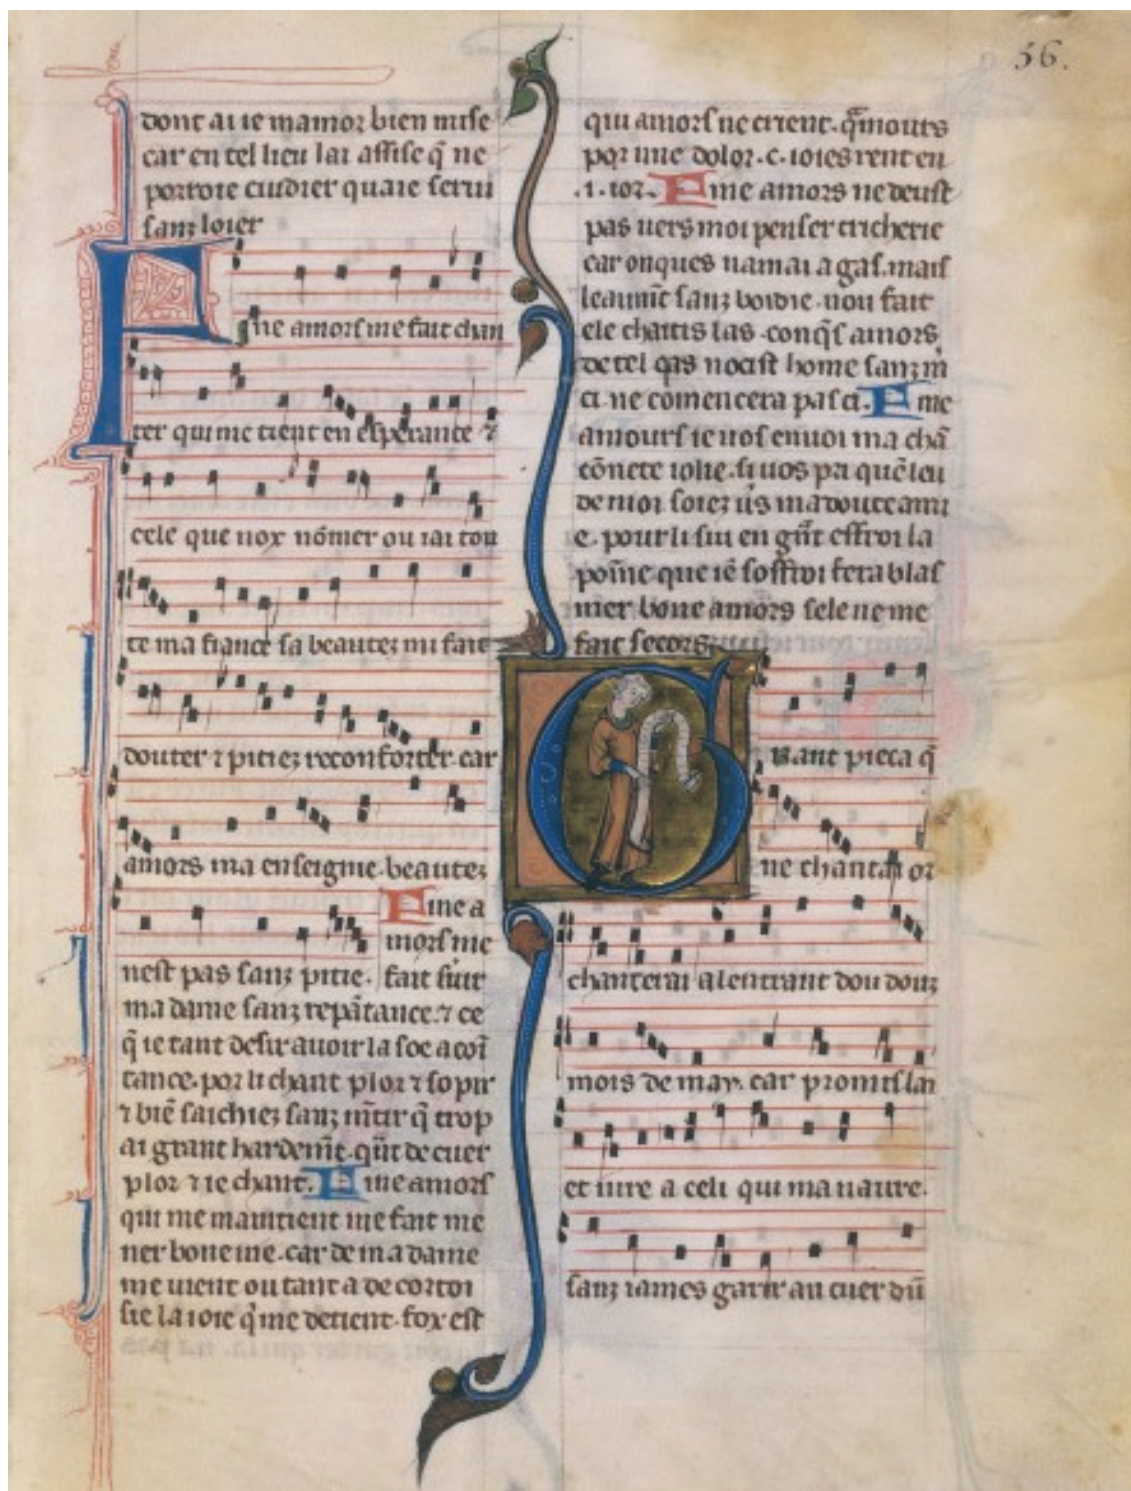 56.
dont ai ie mamor bien mise
car en tel lieu lai assise q̄ ne
porroie cuidier quaie serui
sanz loier
Fine amors me fait chan
ter qui me tient en esperance ⁊
cele que nox nōmer ou iai tou
te ma fiance sa beautez mi fait
douter ⁊ pitiez reconforter. car
amors ma enseignie. beautez
nest pas sanz pitie.
Fine a
mors me
fait suir
ma dame sanz repātance. ⁊ ce
q̄ ie tant desir auoir la soe acoī
tance. por li chant plor ⁊ sopir
⁊ biē saichiez sanz mētir q̄ trop
ai grant hardemēt. qn̄t de cuer
plor ⁊ ie chant. Fine amors
qui me maintient me fait me
ner bone uie. car de ma dame
me uient ou tant a de cortoi
sie la ioie q̄ me detient. fox est
qui amors ne crient. q̄ amours
por une dolor. c. ioies rent en
.i. ior. Fine amors ne deust
pas uers moi penser tricherie
car onques namai a gas. mais
leaumēt sanz boidie. nou fait
ele chaitis las. conq̄s amors
de tel pas nocist home sanz m̄
ci. ne comencera pas ci. Fine
amours ie uos enuoi ma chā
cōnete iolie. si uos pri quē leu
de moi soiez u̓s ma douce ami
e. pour li sui en gn̄t effroi la
poīne que iē soffroi fera blas
mer bone amors sele ne me
fait secors.
Grant pieca q̄
ne chantai or
chanterai a lentrant dou douz
mois de may. car promis lai
et iure a celi qui ma naure.
sanz iames garir au cuer dū